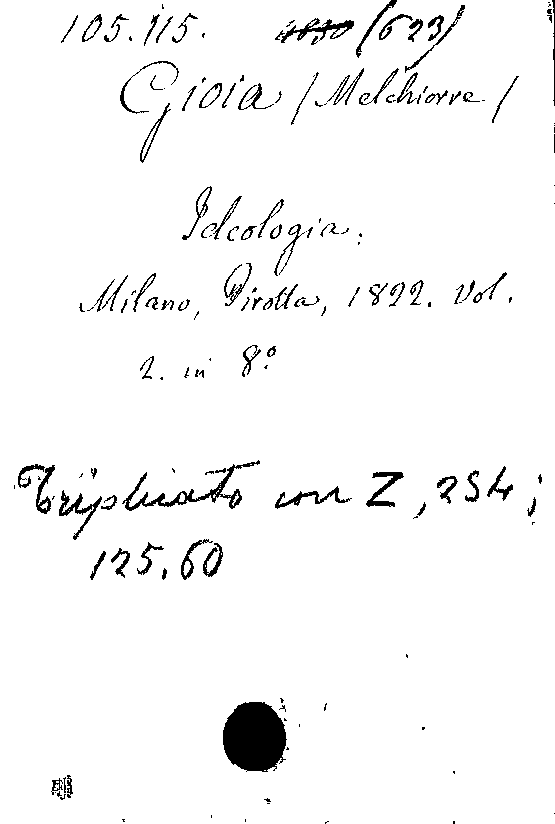 105.115. (623)
Gioia / Melchiorre /
Ideologia.
Milano, Pirotta, 1822. Vol.
2. in 8º
Triplicato con Z, 254;
125.60